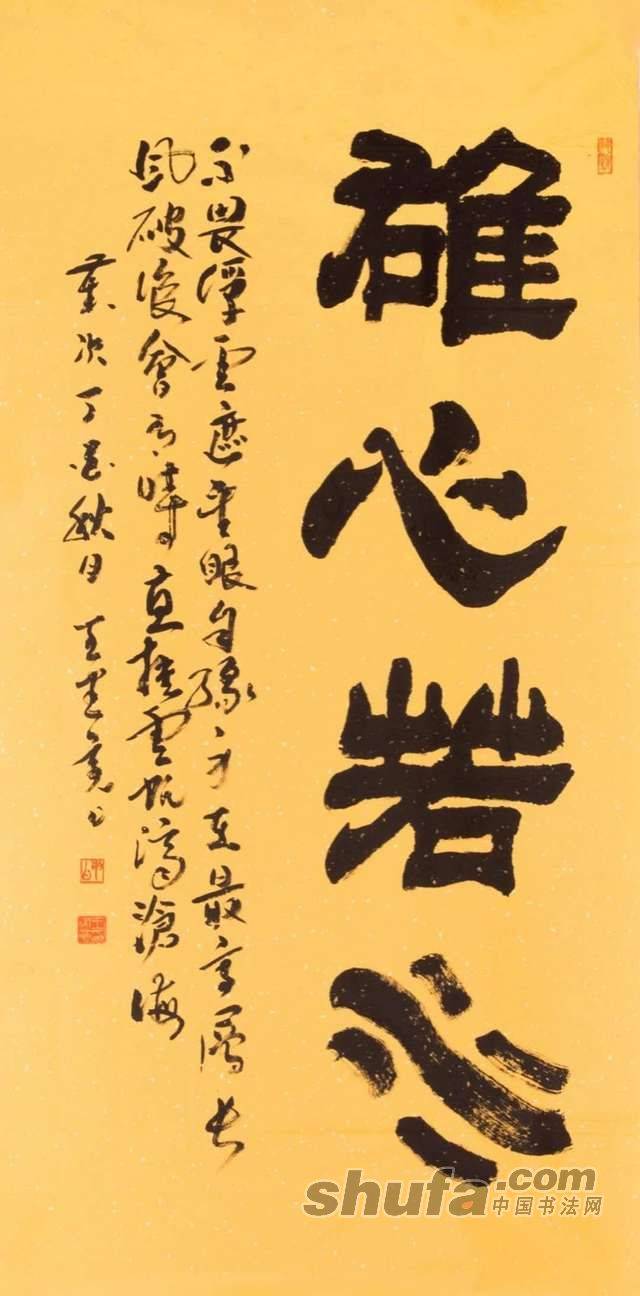 雄心若水
不畏浮雲遮望眼自緣身在最高層長
風破浪會有時直挂雲帆濟滄海
歲次丁酉秋日
shufa.com
中国书法网